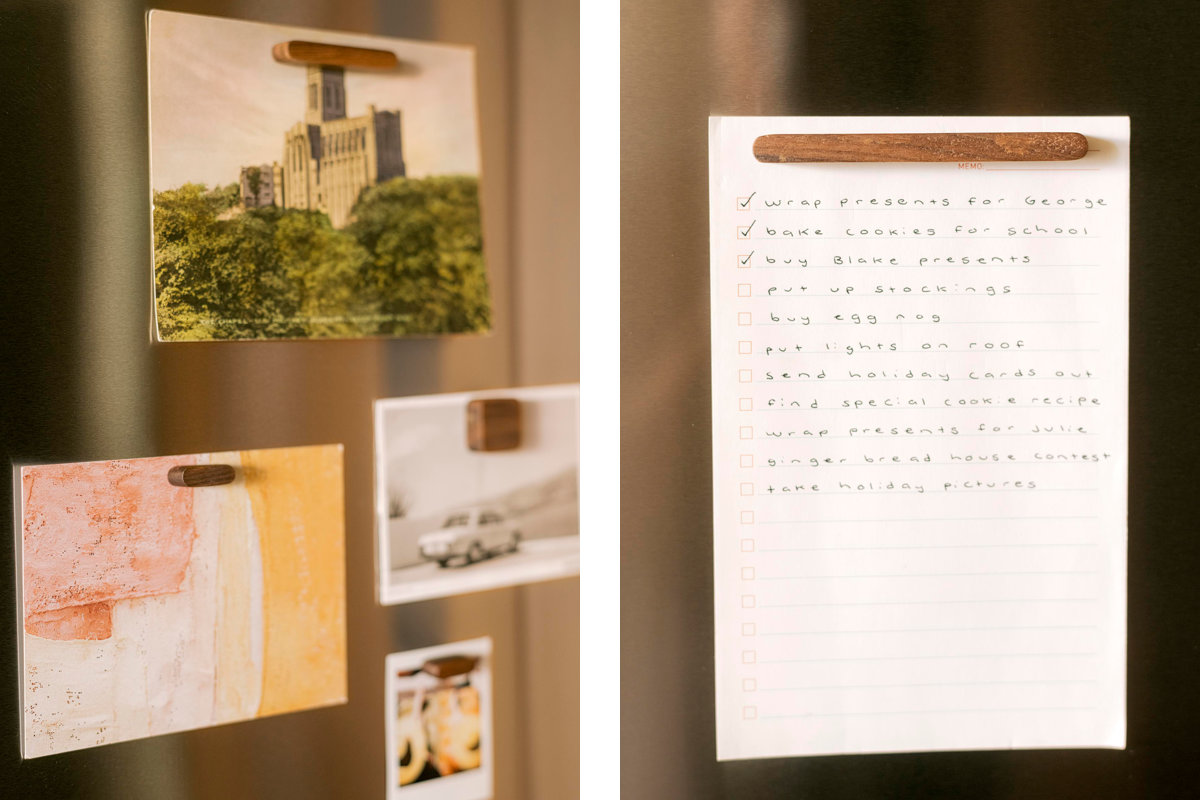 MEMO:
wrap presents for George
bake cookies for school
buy Blake presents
put up stockings
buy egg nog
put lights on roof
send holiday cards out
find special cookie recipe
wrap presents for Julie
ginger bread house contest
take holiday pictures